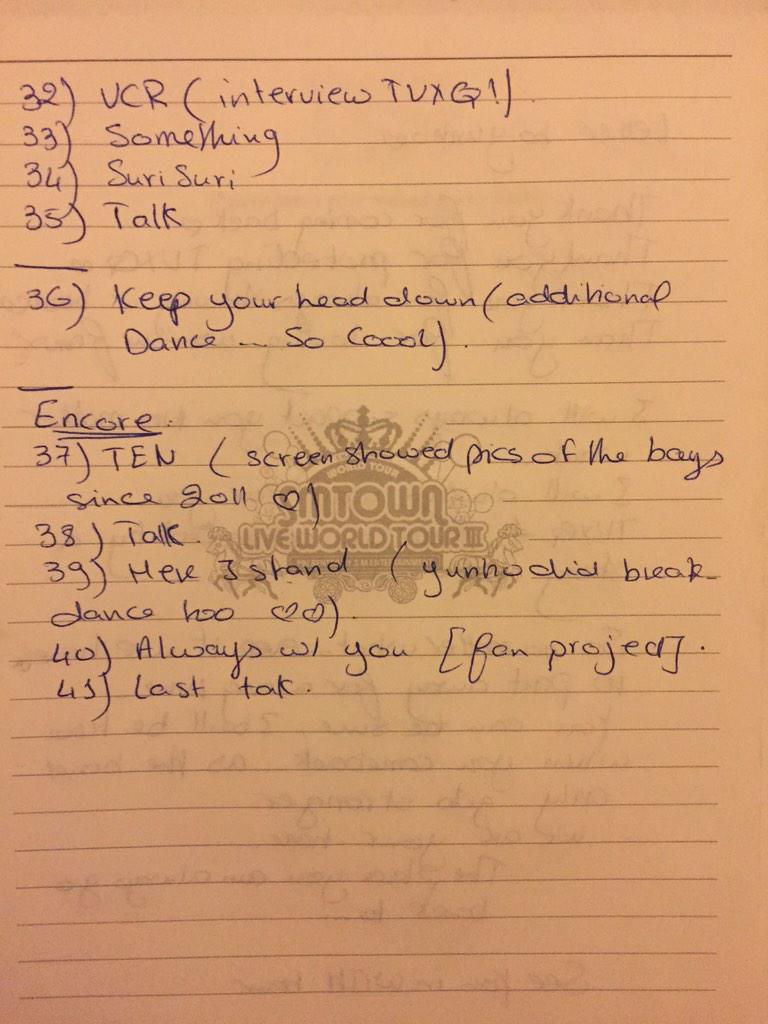 32) VCR (interview TVXQ!)
33) Something
34) Suri Suri
35) Talk
36) Keep your head down (additional
Dance ... So Coool).
Encore.
37) TEN ( screen showed pics of the boys
since 2011 ♡)
WORLD TOUR
SMTOWN
38) Talk.
LIVE WORLD TOUR III
39) Here I stand (yunho did break
dance too ♡♡).
40) Always w/ you [fan project].
41) Last tak.